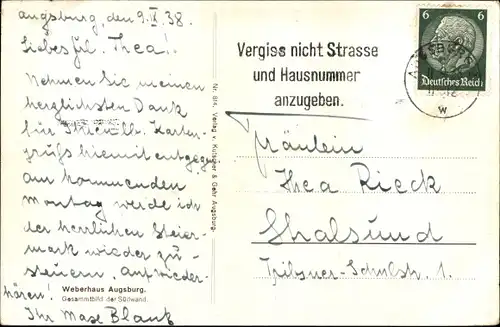 Augsburg, den 9.X.38.
Liebes Frl. Thea!
Nehmen Sie meinen
herzlichsten Dank
für Ihre lb. Karten-
grüße hiemit entgegen
am kommenden
Montag werde ich
der herrlichen Steier-
mark wieder zu-
steuern. Auf wieder-
hören!
Weberhaus Augsburg.
Gesamtbild der Südwand.
Ihr Max Blank
Augsburg.
Vergiss nicht Strasse
und Hausnummer
anzugeben.
6 6
Deutsches Reich
AUGSBURG
W
Fräulein
Thea Rieck
Stralsund
Tribseer-Schulstr. 1.